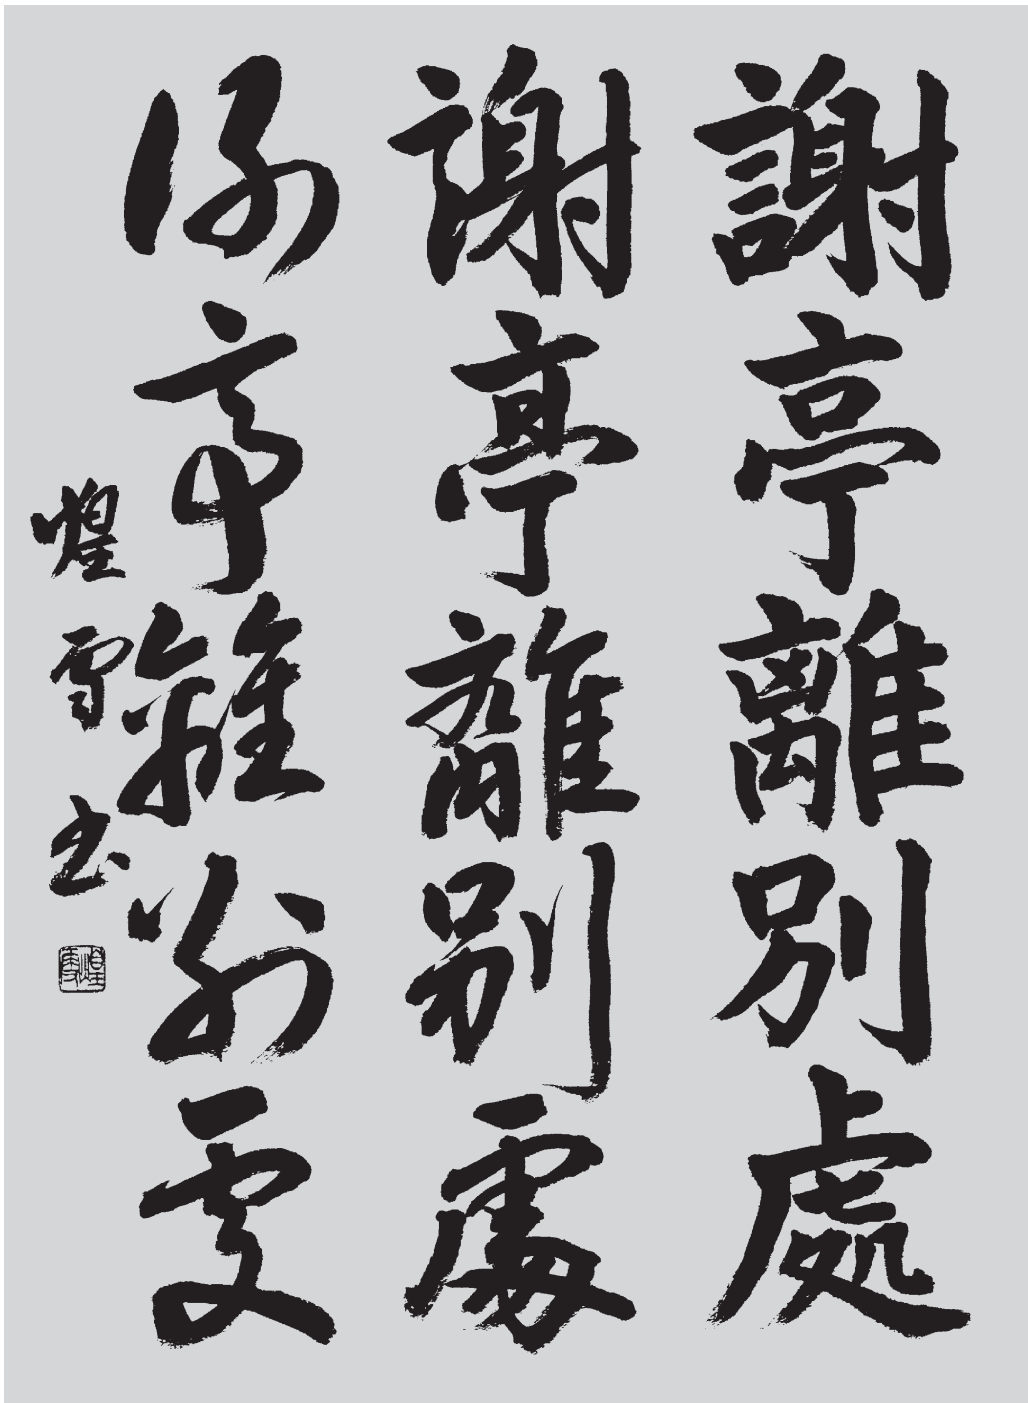 謝亭離別處
謝亭離別處
謝亭離別處
煌雪書
煌雪